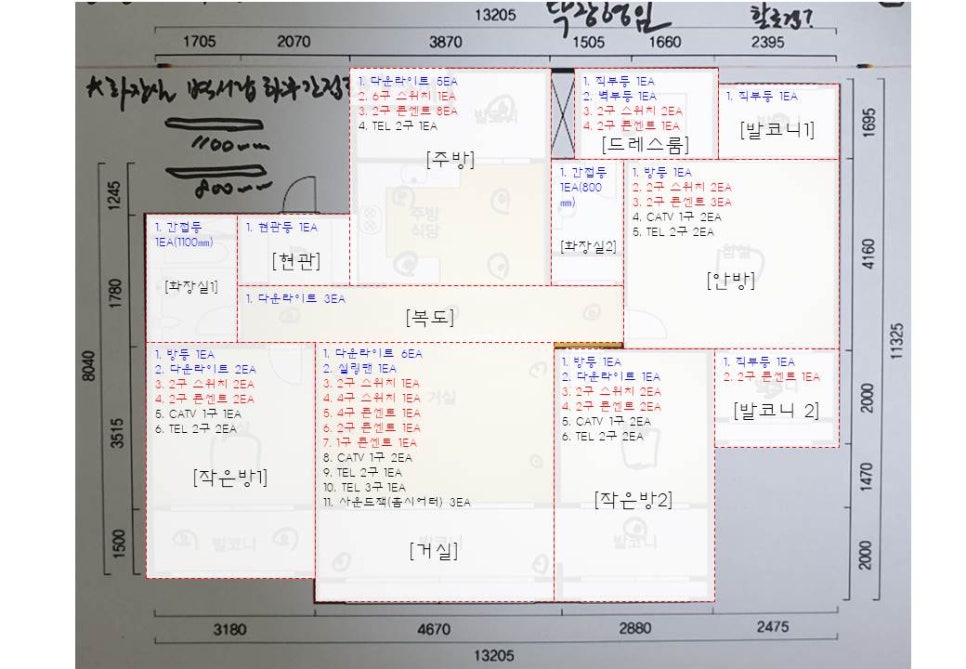 13205
1705 2070 3870 1505 1660 2395
1100mm
800mm
1. 다운라이트 5EA
2. 6구 스위치 1EA
3. 2구 콘센트 8EA
4. TEL 2구 1EA
[주방]
주방
식당
1. 직부등 1EA
2. 벽부등 1EA
3. 2구 스위치 2EA
4. 2구 콘센트 1EA
[드레스룸]
1. 직부등 1EA
[발코니1]
1695
1. 간접등
1EA(800
㎜)
[화장실2]
1. 방등 1EA
2. 2구 스위치 2EA
3. 2구 콘센트 3EA
4. CATV 1구 2EA
5. TEL 2구 2EA
[안방]
4160
1245
1. 간접등
1EA(1100㎜)
[화장실1]
1. 현관등 1EA
[현관]
1780
1. 다운라이트 3EA
[복도]
11325
8040
1. 방등 1EA
2. 다운라이트 2EA
3. 2구 스위치 2EA
4. 2구 콘센트 2EA
5. CATV 1구 1EA
6. TEL 2구 2EA
[작은방1]
3515
1. 다운라이트 6EA
2. 실링팬 1EA
3. 2구 스위치 1EA
4. 4구 스위치 1EA
5. 4구 콘센트 1EA
6. 2구 콘센트 1EA
7. 1구 콘센트 1EA
8. CATV 1구 2EA
9. TEL 2구 1EA
10. TEL 3구 1EA
11. 사운드잭(홈시어터) 3EA
거실
[거실]
1. 방등 1EA
2. 다운라이트 1EA
3. 2구 스위치 2EA
4. 2구 콘센트 2EA
5. CATV 1구 2EA
6. TEL 2구 2EA
[작은방2]
1. 직부등 1EA
2. 2구 콘센트 1EA
[발코니 2]
2000
1470
1500
발코니
발코니
2000
3180 4670 2880 2475
13205